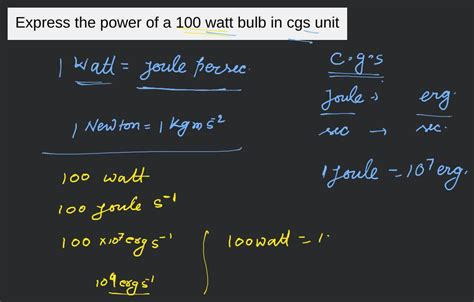 Express the power of a 100 watt bulb in cgs unit
1 Watt = joule persec.
1 Newton = 1 kgms-2
100 watt
100 joule s-1
100 x107 ergs-1
109 ergs-1
100watt = 1.
C.g.s
Joule → erg.
sec → sec.
1 joule = 107 erg.